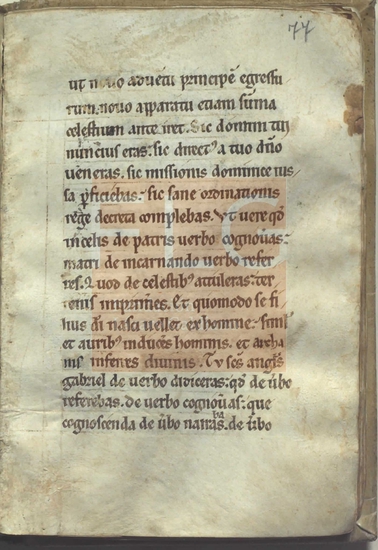 77
ut novo adventu principē egressu
rum novo apparatu etiam sūma
celestium ante iret. Sic domini tui
nuncius eras. sic directꝰ a tuo dño
veneras. sic missionis dominice ius
sa ꝑficiebas. sic sane ordinationis
rege decreta complebas. Ut vere qđ
in celis de patris verbo cognovͣas.
matri de incarnando verbo refer
res. Quod de celestibꝰ attuleras. ter
renis imprimes. Et quomodo se fi
lius di nasci vellet ex homine. simł
et auribꝰ induces hominis. et archa
nis inferres divinis. Tu scs angłs
gabriel de verbo didiceras. qđ de ůbo
referebas. de verbo cognovͣas. que
cognoscenda de ůbo narrabas. de ůbo